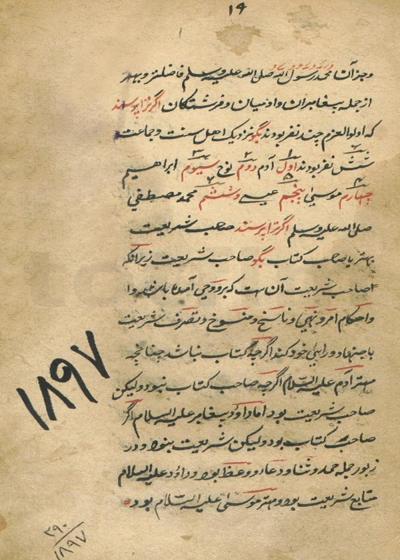 ۱۴
وجز آن محمد رسول الله صلی الله علیه وسلم فاضلتر و بهتر
از جمله پیغامبران و آدمیان و فرشتگان اگر ترا پرسند
که اولوالعزم چند نفر بودند بگو نزدیک اهل سنت و جماعت
شش نفر بودند اول آدم دوم نوح سیوم ابراهیم
چهارم موسی پنجم عیسی و ششم محمد مصطفی
صلی الله علیه وسلم اگر ترا پرسند صاحب شریعت
بهتر یا صاحب کتاب بگو صاحب شریعت زیرا که
صاحب شریعت آن است که بر و وحی آمده باشد و
واحکام امر و نهی و ناسخ و منسوخ و تصرف شریعت
باجتهاد و رای خود کند اگرچه کتاب نباشد چنانچه
مهتر آدم علیه السلام اگرچه صاحب کتاب نبود ولیکن
صاحب شریعت بود اما داود پیغامبر علیه السلام اگر
صاحب کتاب بود ولیکن شریعت نبود و در
زبور جمله حمد و ثنا و دعا و وعظ بود و داود علیه السلام
متابع شریعت بود و مهتر موسی علیه السلام بود
۱۸۹۷
۲۹۰
۱۸۹۷